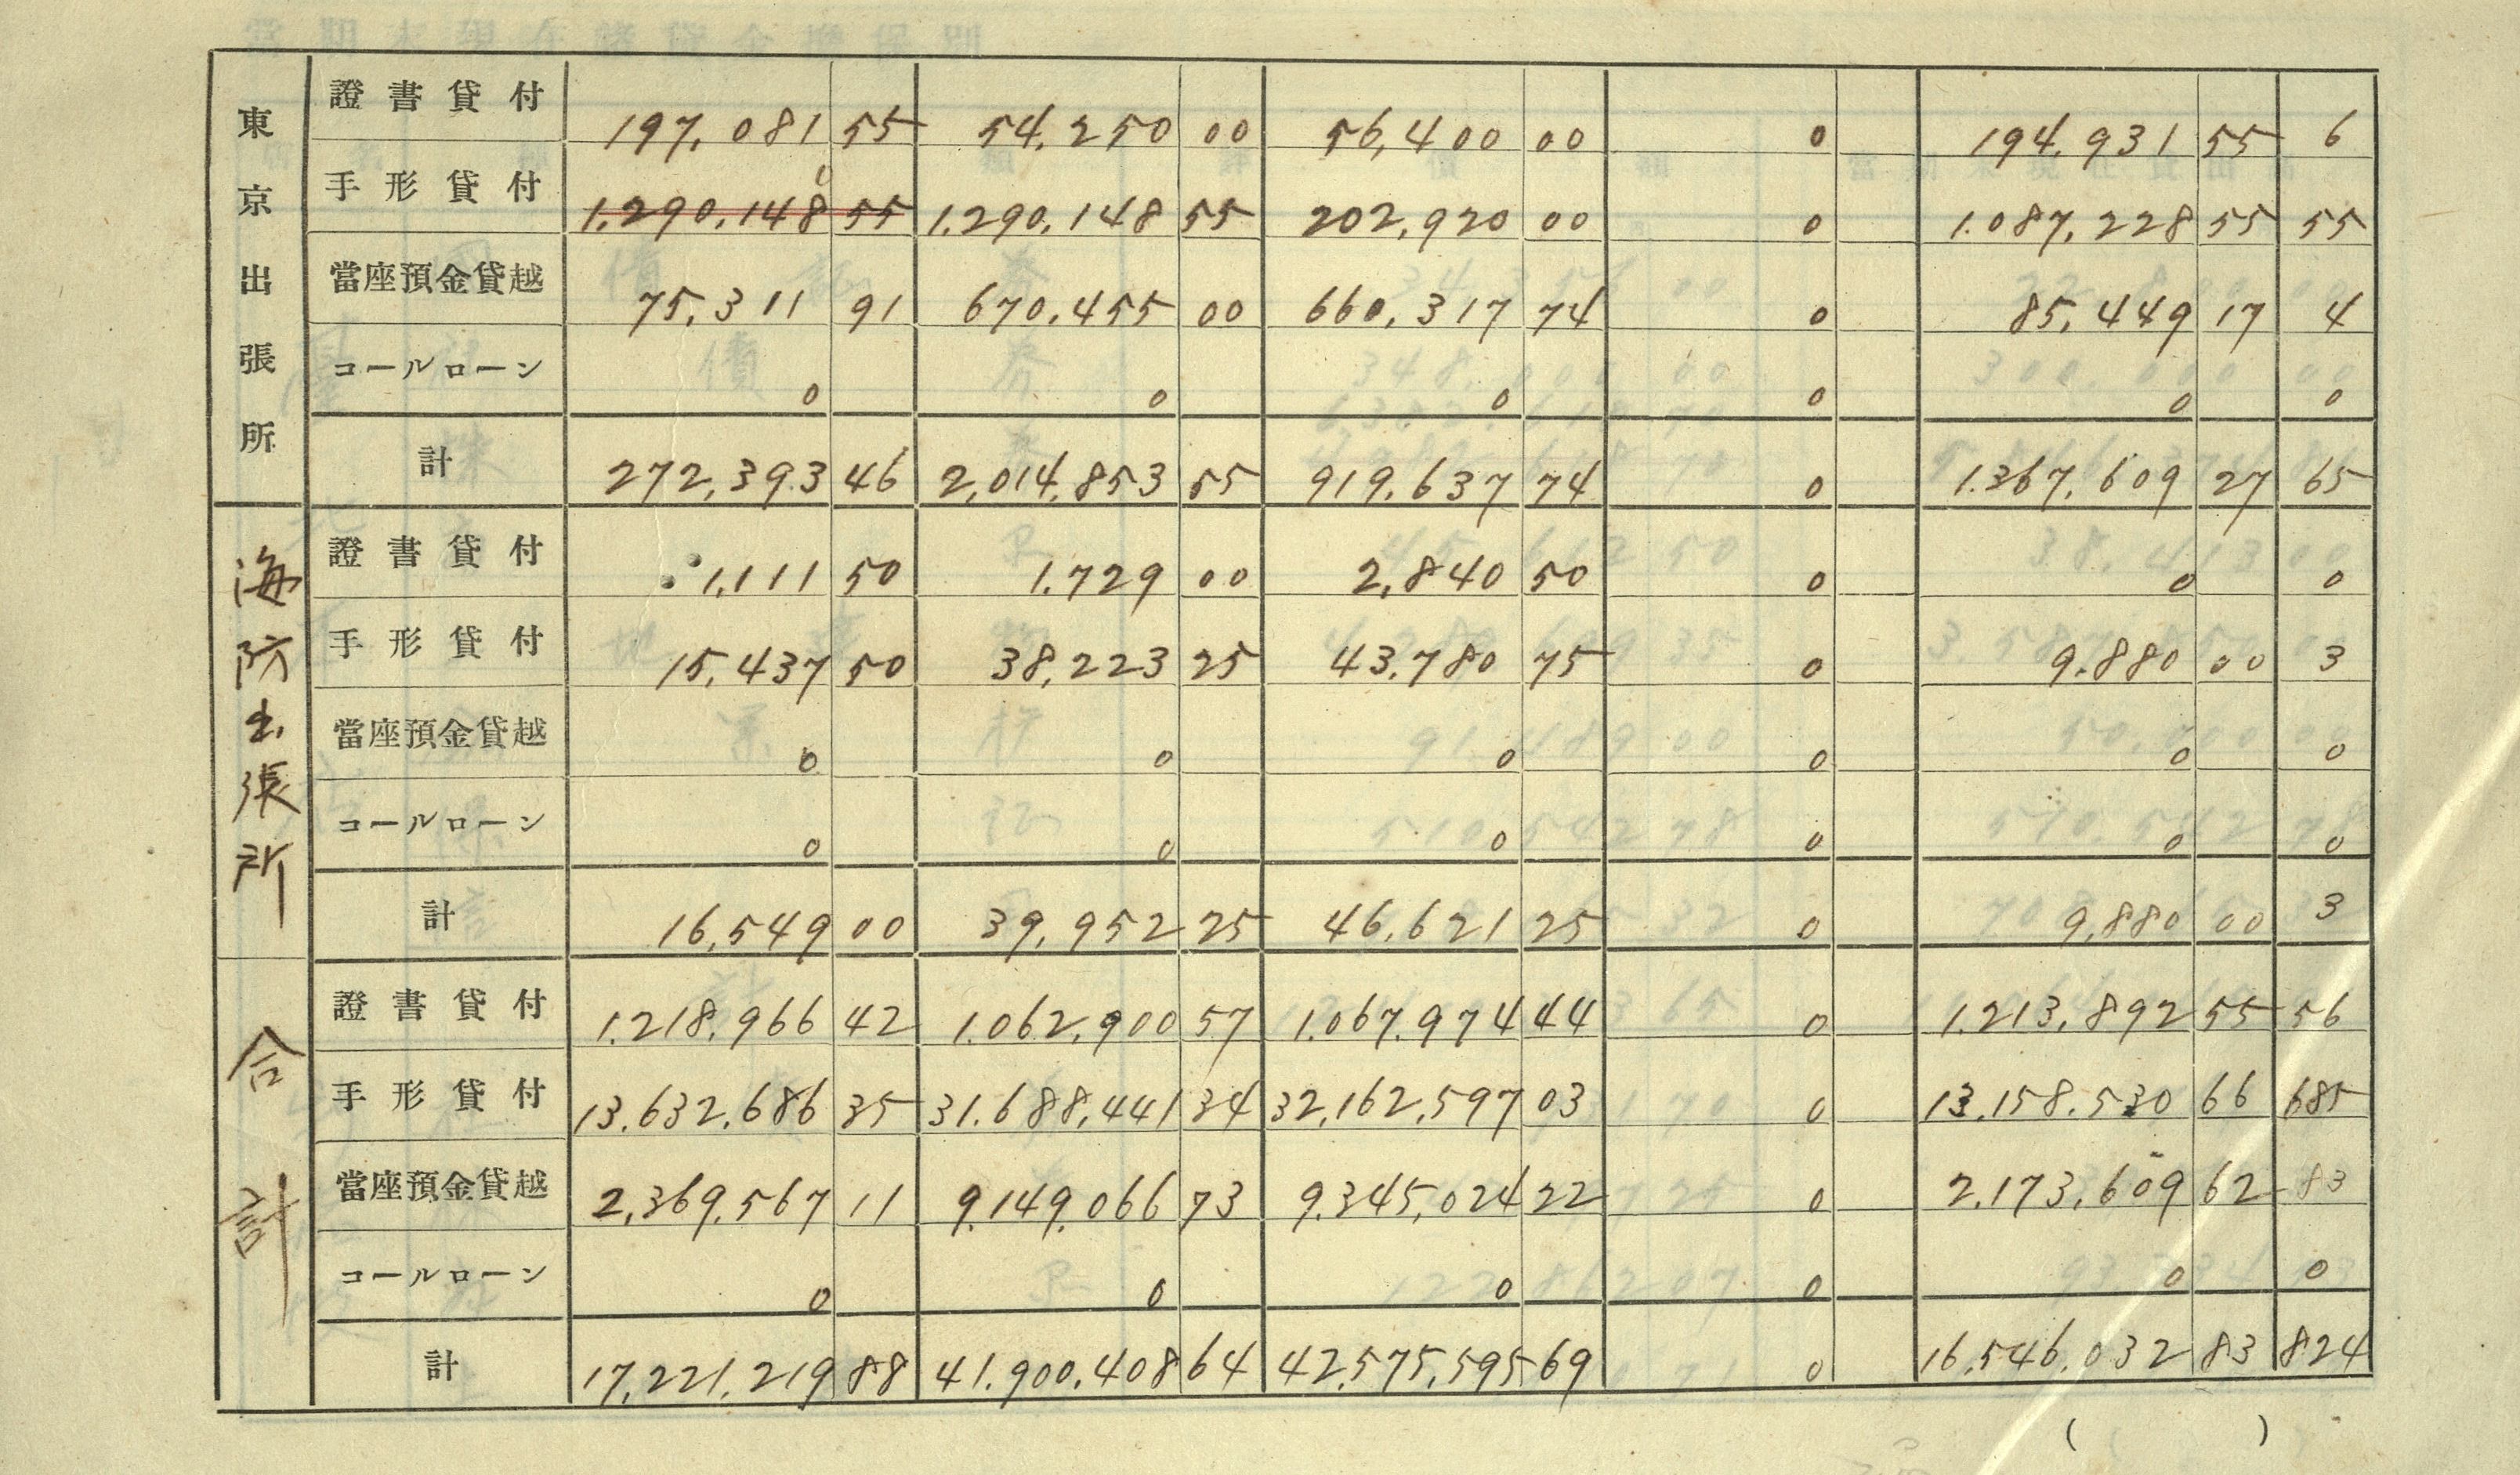 東京出張所
證書貸付 197,081 55 54,250 00 56,400 00 0 194,931 55 6
手形貸付 0 1,290,148 55 1,290,148 55 202,920 00 0 1,087,228 55 55
當座預金貸越 75,311 91 670,455 00 660,317 74 0 85,449 17 4
コールローン 0 0 0 0 0 0
計 272,393 46 2,014,853 55 919,637 74 0 1,367,609 27 65
海防出張所
證書貸付 1,111 50 1,729 00 2,840 50 0 0 0
手形貸付 15,437 50 38,223 25 43,780 75 0 9,880 00 3
當座預金貸越 0 0 0 0 0 0
コールローン 0 0 0 0 0 0
計 16,549 00 39,952 25 46,621 25 0 9,880 00 3
合計
證書貸付 1,218,966 42 1,062,900 57 1,067,974 44 0 1,213,892 55 56
手形貸付 13,632,686 35 31,688,441 34 32,162,597 03 0 13,158,530 66 685
當座預金貸越 2,369,567 11 9,149,066 73 9,345,024 22 0 2,173,609 62 83
コールローン 0 0 0 0 0 0
計 17,221,219 88 41,900,408 64 42,575,595 69 0 16,546,032 83 824
( )